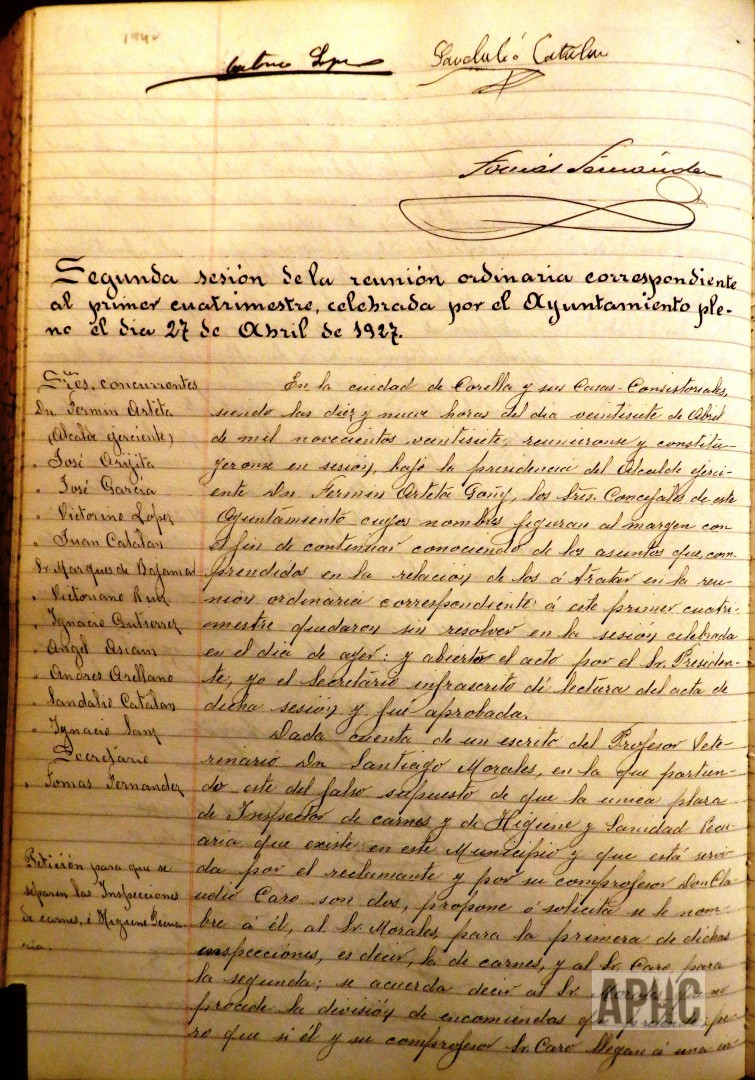 Sandalio Catalan
Tomás Fernández
Segunda sesión de la reunión ordinaria correspondiente
al primer cuatrimestre, celebrada por el Ayuntamiento ple-
no el dia 27 de Abril de 1927.
Sres. concurrentes
Dn. Fermin Arteta
(Alcalde ejerciente)
" José Arijita
" José Garcia
" Victorino López
" Juan Catalan
Sr. Marques de Bajamar
" Victoriano Ruiz
" Ignacio Gutierrez
" Angel
" Andres Arellano
" Sandalio Catalan
" Ignacio Sanz
Secretario
" Tomas Fernandez
Petición para que se
separen las Inspecciones
de carnes, é Higiene Pecua-
ria.
En la ciudad de Corella y sus Casas-Consistoriales,
siendo las diez y nueve horas del dia veintisiete de Abril
de mil novecientos veintisiete, reunieronse y constitu-
yeronse en sesión, bajo la presidencia del Alcalde ejerci-
ente Dn Fermin Arteta Goñy, los Sres. Concejales de este
Ayuntamiento cuyos nombres figuran al margen con
el fin de continuar conociendo de los asuntos que, com-
prendidos en la relación de los á tratar en la reu-
nión ordinaria correspondiente á este primer cuatri-
mestre quedaron sin resolver en la sesión celebrada
en el dia de ayer: y abierto el acto por el Sr. Presiden-
te, yo el Secretario infrascrito di lectura del acta de
dicha sesión y fué aprobada.
Dada cuenta de un escrito del Profesor Vete-
rinario Dn Santiago Morales, en la que partien-
do este del falso supuesto de que la unica plaza
de Inspector de carnes y de Higiene y Sanidad Pecu-
aria que existe en este Municipio y que está servi-
da por el reclamante y por su comprofesor Don Cla-
udio Caro son dos, propone ó solicita se le nom-
bre á él, al Sr. Morales, para la primera de dichas
inspecciones, es decir, la de carnes, y al Sr. Caro para
la segunda; se acuerda decir al Sr. Morales que no
procede la división de encomiendas que pe-
ro que si él y su comprofesor Sr. Caro llegan á una
APHC